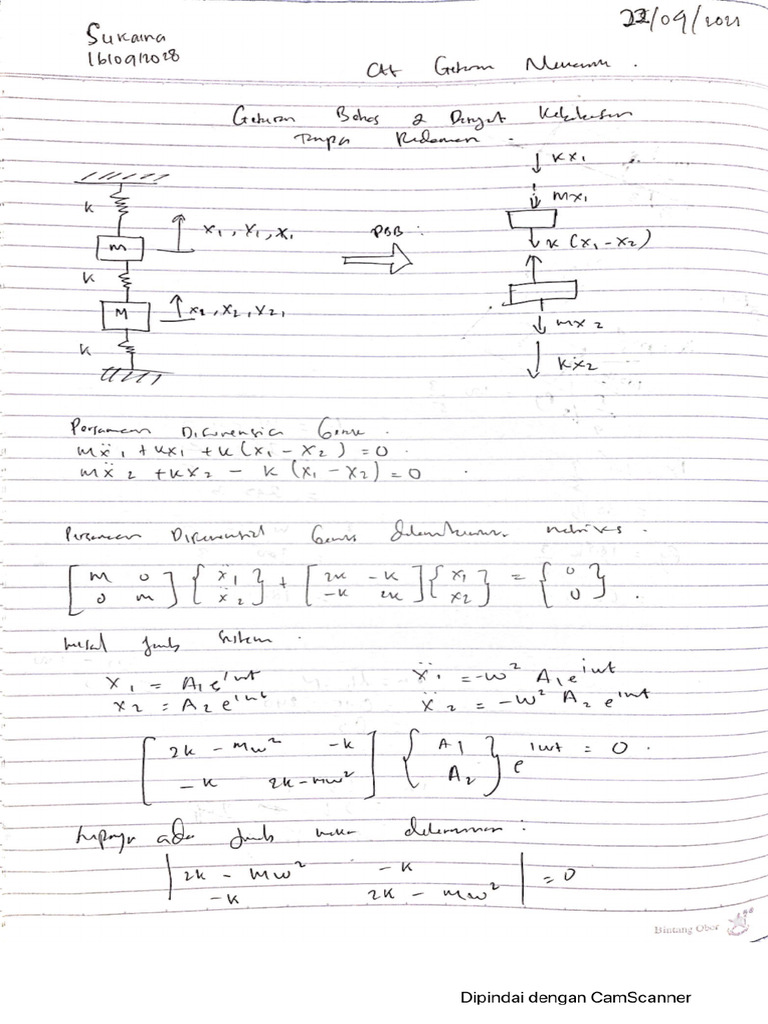 22/09/2021
Sukaina
1610912028
Getaran Bebas 2 Derajat Kebebasan
Tanpa Redaman.
k
m
x1, x1, x1
k
M
x2, x2, x2,
k
PBB :
kx1
mx1
k (x1 - x2)
mx2
kx2
Persamaan Diferensial Gerak.
mẍ1 + kx1 + k (x1 - x2) = 0.
mẍ2 + kx2 - k (x1 - x2) = 0
Persamaan Diferensial Gerak matriks.
[m 0; 0 m] {ẍ1; ẍ2} + [2k -k; -k 2k] {x1; x2} = {0; 0}.
misal sistem.
x1 = A1 e^iωt ẍ1 = -ω² A1 e^iωt
x2 = A2 e^iωt ẍ2 = -ω² A2 e^iωt
[2k - mω² -k; -k 2k - mω²] {A1; A2} e^iωt = 0.
Supaya ada maka determinan :
|2k - mω² -k; -k 2k - mω²| = 0
Bintang Obor
Dipindai dengan CamScanner